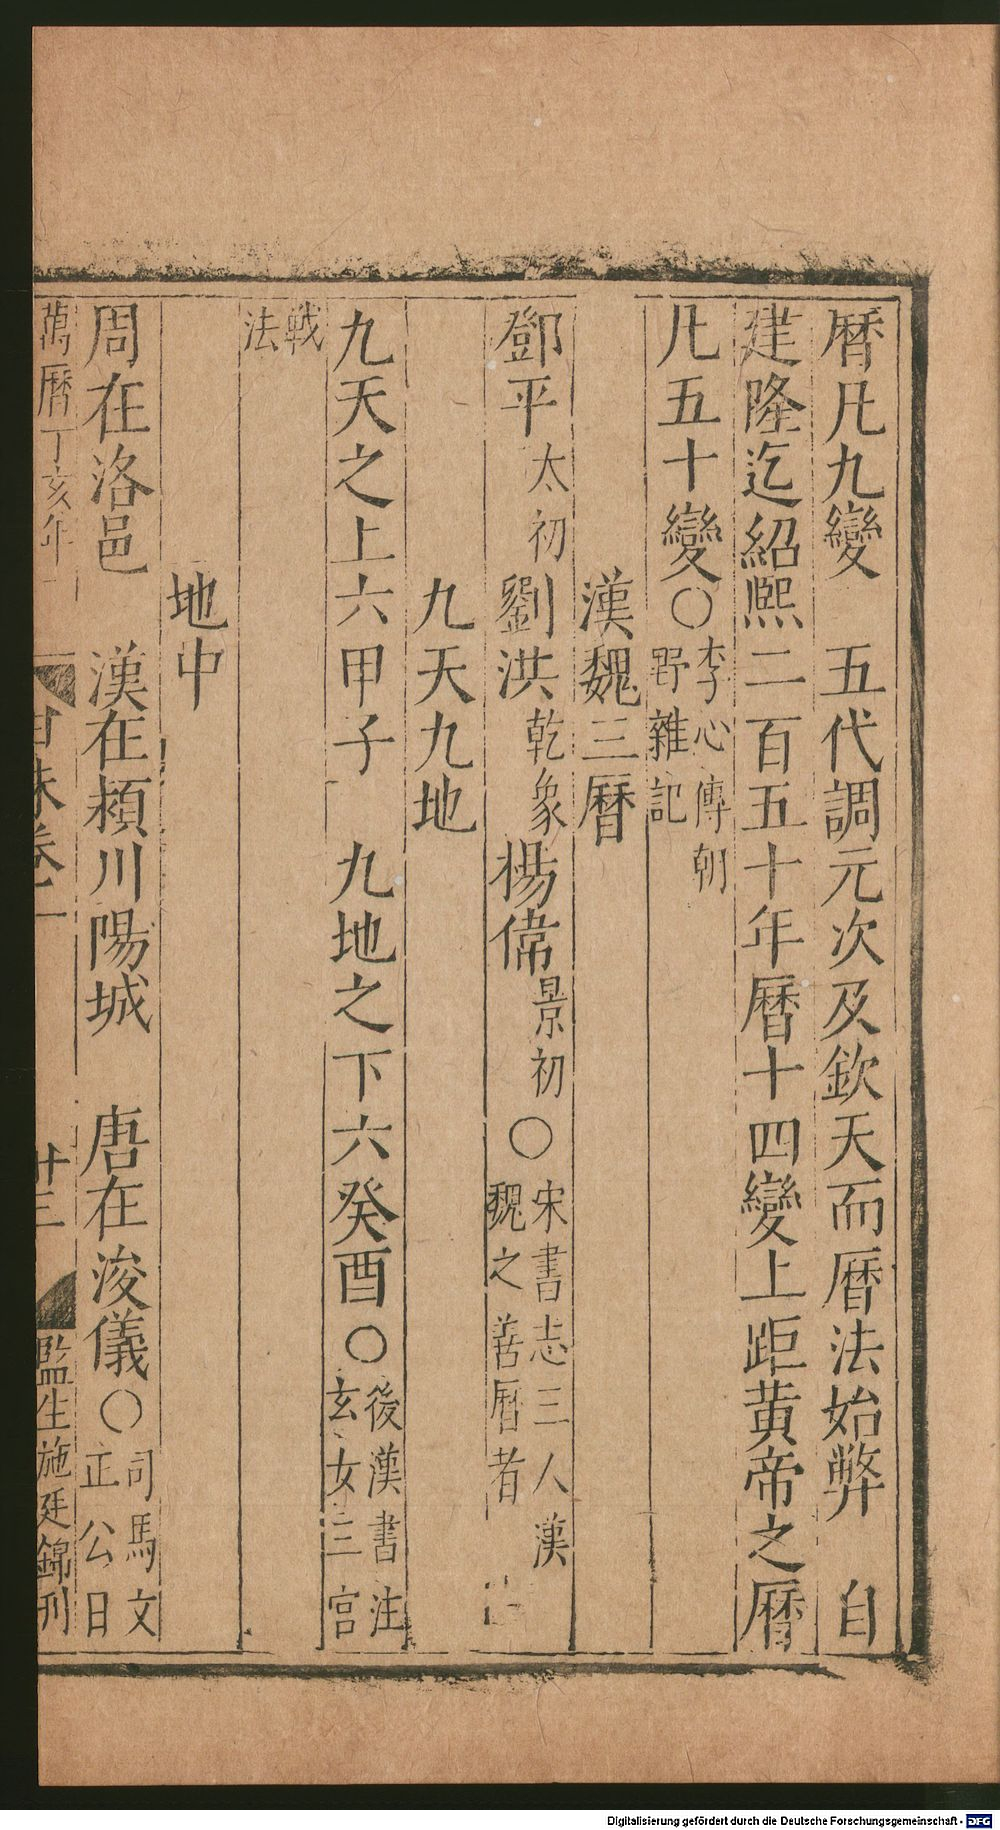 曆凡九變　五代調元次及欽天而曆法始弊　自
建隆迄紹熙二百五十年曆十四變上距黃帝之曆
凡五十變○李心傳朝野雜記
漢魏三曆
鄧平太初劉洪乾象楊偉景初○宋書志三人漢魏之善曆者
九天九地
九天之上六甲子　九地之下六癸酉○後漢書注玄女三宮
戰法
地中
周在洛邑　漢在潁川陽城　唐在浚儀○司馬文正公曰
萬曆丁亥年
卷一
十三
監生施廷錦刊
Digitalisierung gefördert durch die Deutsche Forschungsgemeinschaft - DFG